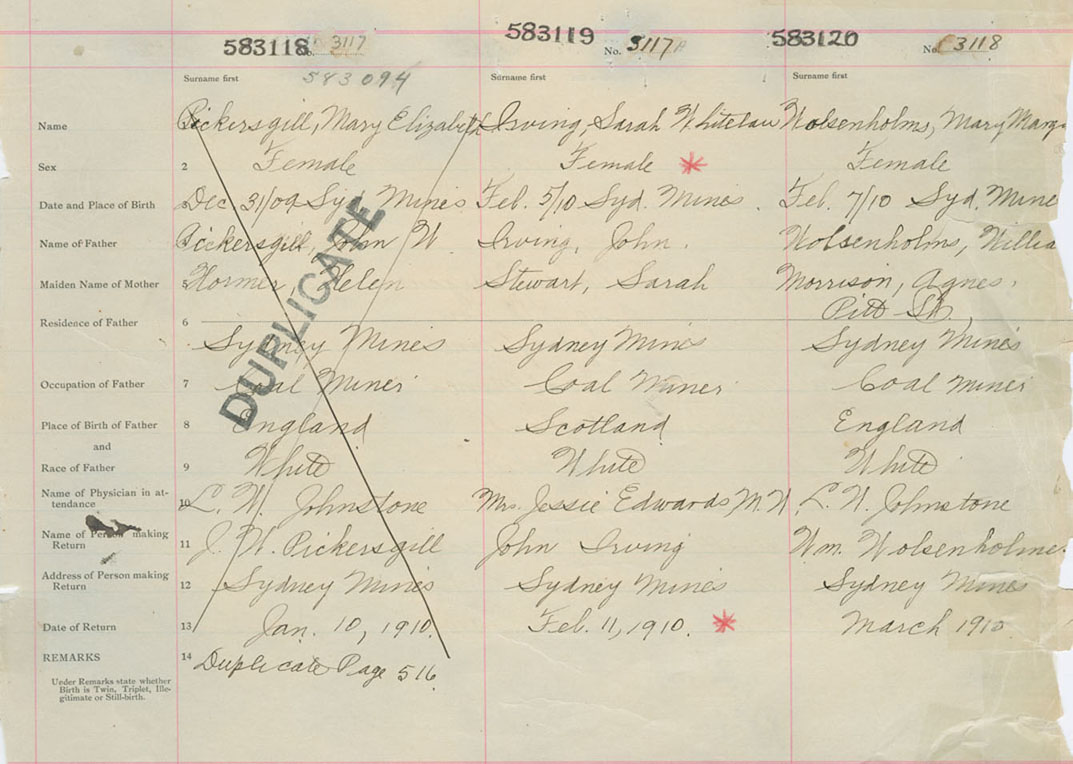 583118 No. 3117 583119 No. 3117A 583120 No. 3118
Surname first 583094 Surname first Surname first
Name Pickersgill, Mary Elizabeth Irving, Sarah Whitelaw Wolsenholms, Mary Marg
Sex 2 Female Female Female
Date and Place of Birth Dec 31/09 Syd Mines Feb. 5/10 Syd. Mines. Feb. 7/10 Syd. Mine
Name of Father Pickersgill, John W Irving, John. Wolsenholms, Willia
Maiden Name of Mother 5 Hormer, Helen Stewart, Sarah Morrison, Agnes.
Pitt St.,
Residence of Father 6 Sydney Mines Sydney Mines Sydney Mines
Occupation of Father 7 Coal Miner Coal Miner Coal Miner
Place of Birth of Father 8 England Scotland England
and
Race of Father 9 White White White
Name of Physician in at-
tendance 10 L. W. Johnstone Mrs. Jessie Edwards M.W. L. W. Johnstone
Name of Person making
Return 11 J. W. Pickersgill John Irving Wm. Wolsenholme
Address of Person making
Return 12 Sydney Mines Sydney Mines Sydney Mines
Date of Return 13 Jan. 10, 1910. Feb. 11, 1910. March 1910
REMARKS 14 Duplicate Page 516
Under Remarks state whether
Birth is Twin, Triplet, Ille-
gitimate or Still-birth.
DUPLICATE